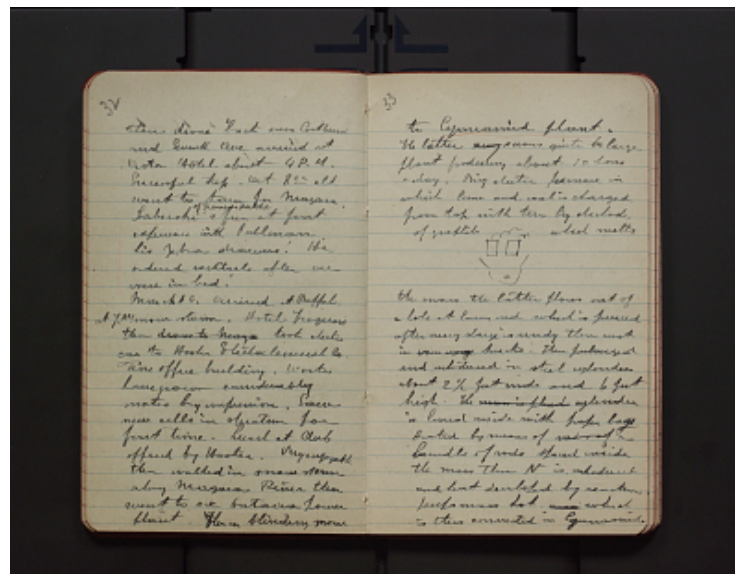 32
then drove back over
and Euwell Ave arrived at
Hotel about 4 P.M.
Successful trip. At 8
went to train for Niagara.
's fun at first
experience with Pullman
his Zebra drawers! He
ordered cocktails after we
were in bed!
March 8. arrived at Buffalo
at 7 AM snow storm. Hotel Iroquois
then took electric
car to Hooker Electrochemical Co.
Fine office building. Works
have grown considerably
makes big impression. Saw
new cells in operation for
first time. Lunch at Club
offered by Hooker. Very enjoyable
then walked in snow storm
along Niagara River then
went to see Ontario Power
plant. Then blinding snow
33
to Cyanamid plant.
The latter seems quite a large
plant producing about 10 tons
a day. Big electric furnace in
which lime and coal is charged
from top with two big electrod.
of graphite which melts
the mass the latter flows out of
a hole at lower end which is pierced
after every charge is ready then
in trucks. then pulverized
and introduced in steel cylinders
about 2 1/2 feet wide and 6 feet
high. The cylinder
is lined inside with paper bag
heated by means of
bundle of rods placed inside
the mass then N is introduced
and heat developed by reaction
mass hot which
is then converted in Cyanamid